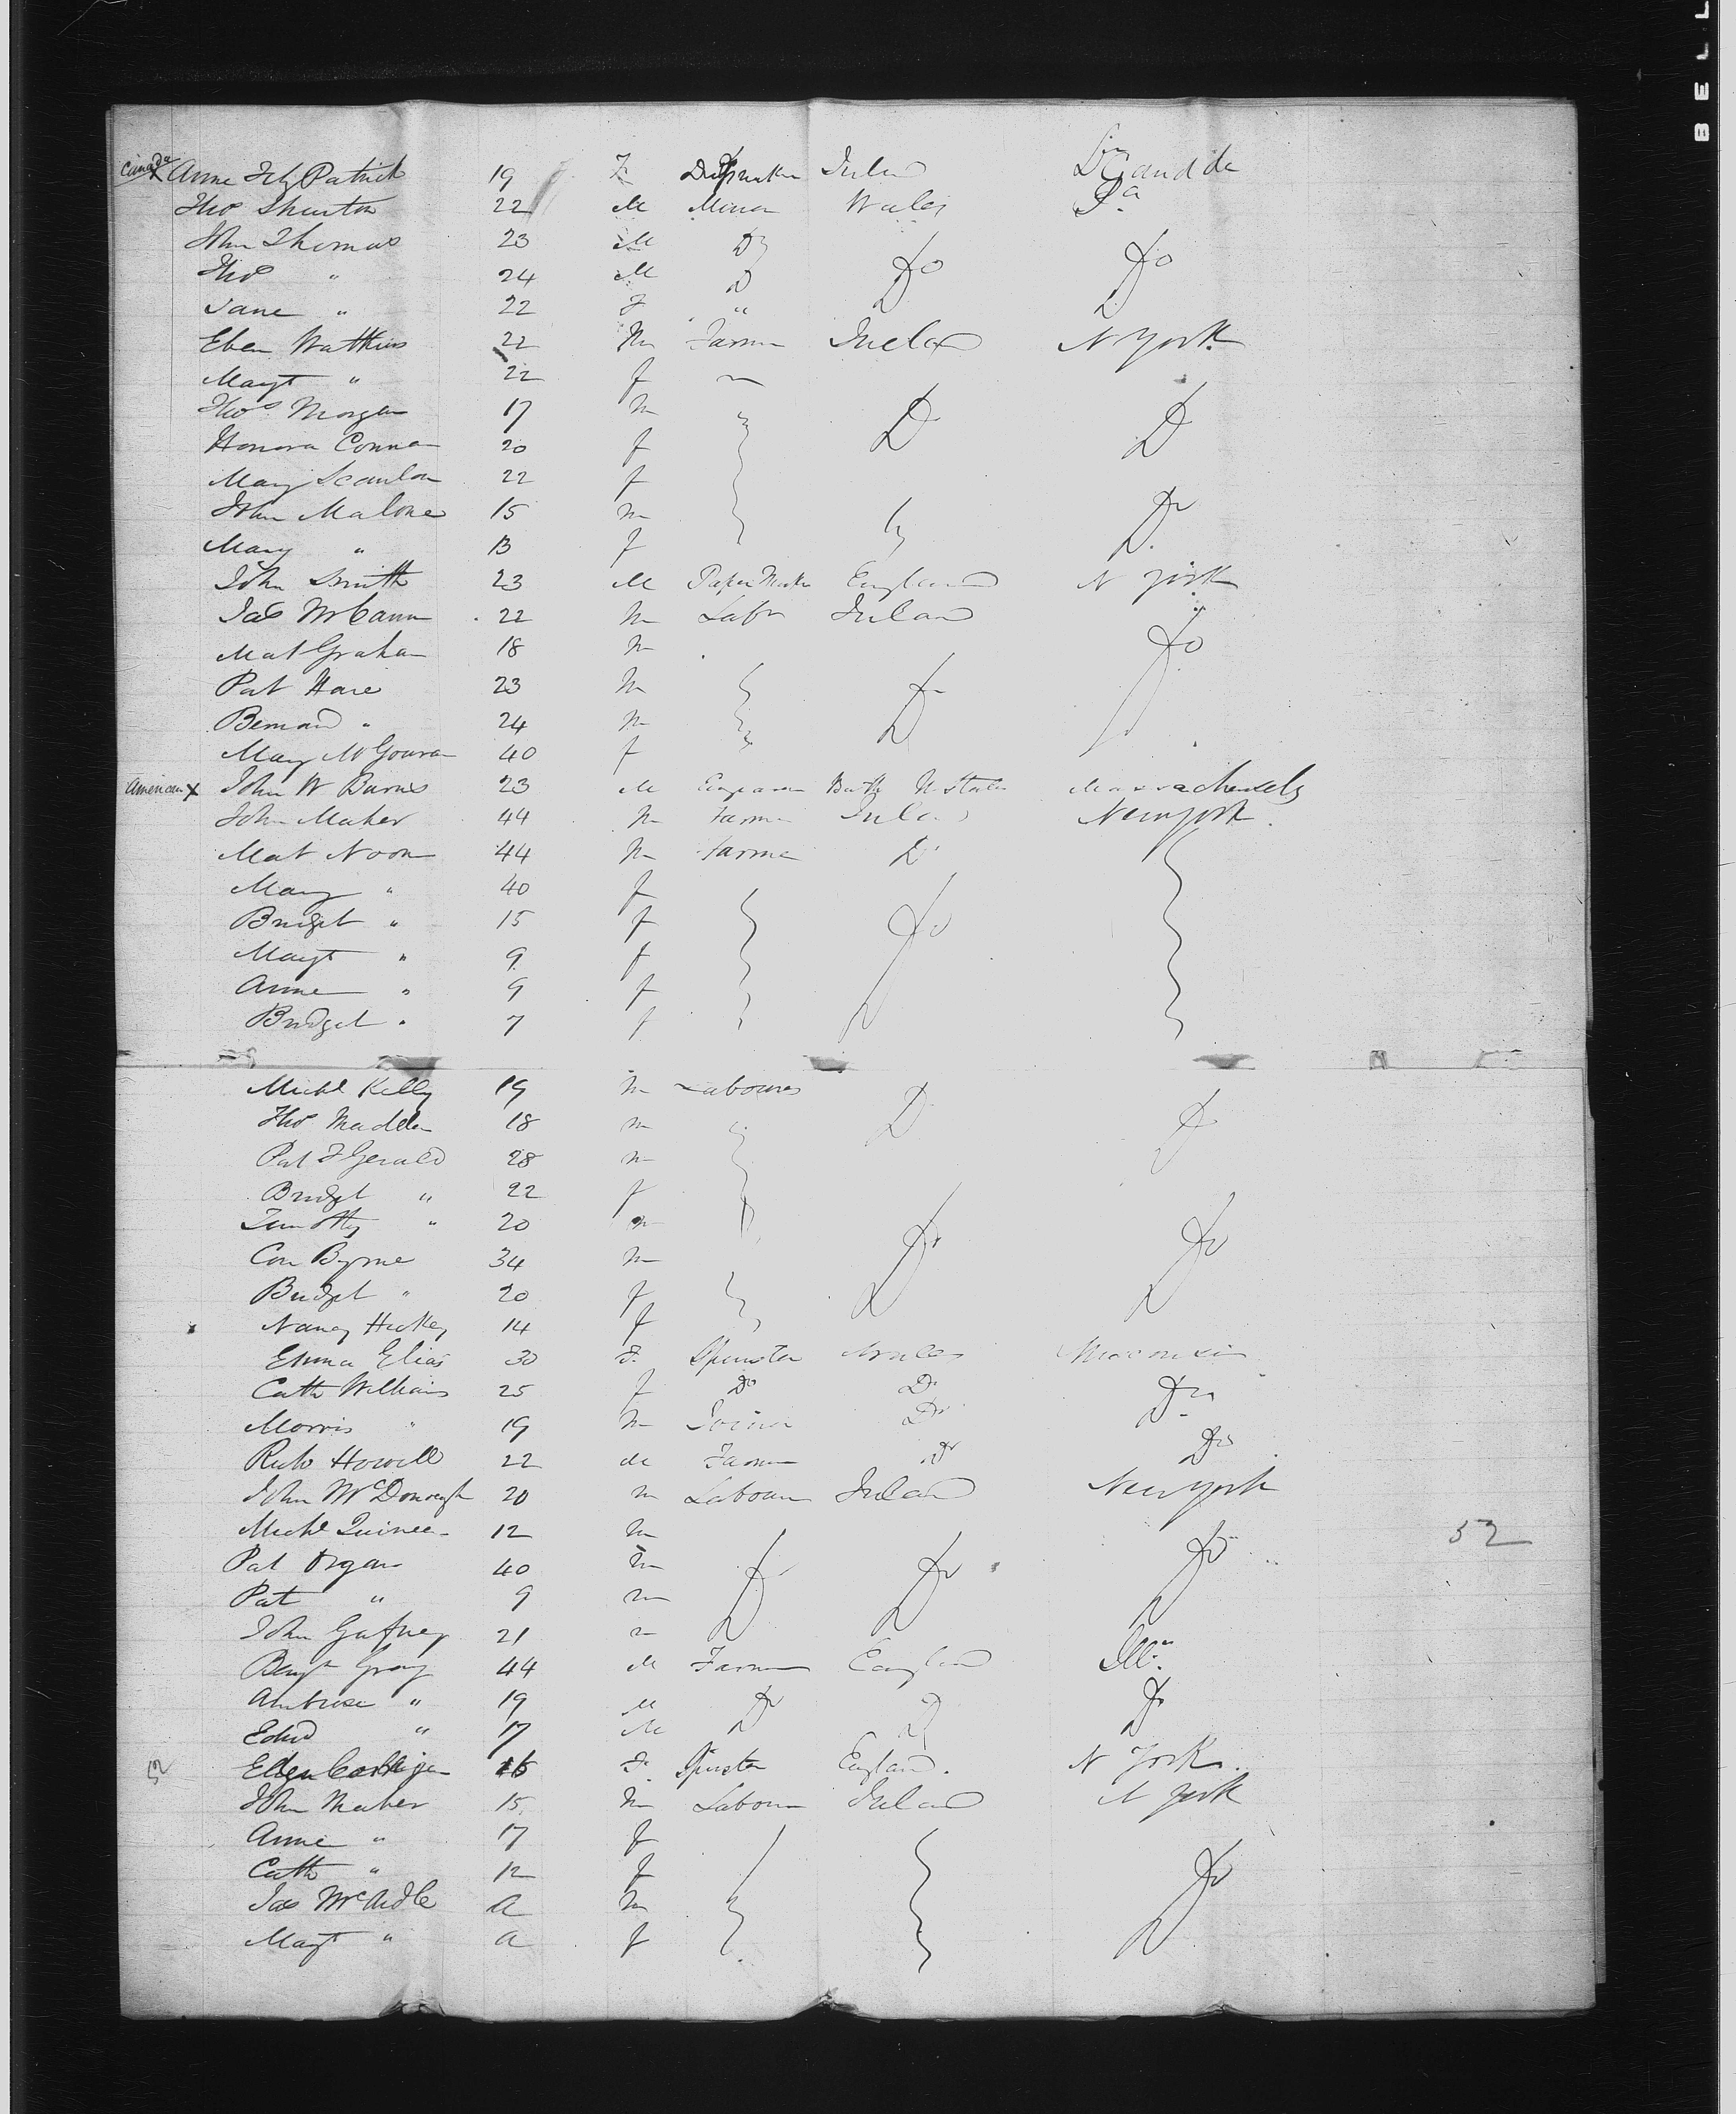 BELL
Canada x Anne Fitz Patrick 19 F Ireland
Thos 22 M Miner Wales Pa
John Thomas 23 M Do Do Do
Thos " 24 M D
Jane " 22 F "
Eben Watkins 22 m Farmer N York
Margt " 22 f
Thos Morgan 17 m D D
Honora 20 f
Mary Scanlon 22 f
John Malone 15 m Do
Mary " 13 f
John Smith 23 M Paper Maker England N York
Jas McCann 22 m Labr Ireland
Mat Graham 18 m Do
Pat Hare 23 m Do
Bernard " 24 m
Mary McGowran 40 f
American x John W Burns 23 M U States Massachusetts
John Maher 44 m Farmer Ireland New york
Mat Noon 44 m Farmer Do
Mary " 40 f
Bridget " 15 f Do
Margt " 9 f
Anne " 9 f
Bridget " 7 f
Michl Kelly 19 m Labourer D Do
Thos Madden 18 m
Pat F Gerald 28 m
Bridget " 22 f
Timothy " 20 m Do Do
Con Byrne 34 m
Bridget " 20 f
Nancy Hickey 14 f
Emma Elias 30 F. Spinster Wales Wisconsin
Cath Williams 25 f Do Do Do
Morris " 19 m Joiner Do
Richd Howell 22 M Farmer Do Do
John McDonough 20 m Labourer Ireland New york
Michl 12 m Do 52
Pat Organ 40 m Do Do
Pat " 9 m
John Gafney 21 m
Benjn Gray 44 M Farmer England Ills
Ambrose " 19 M Do D Do
Edwd " 17 M
52 Ellen 16 F. Spinster England. N York.
John Maher 15 m Labourer Ireland N york
Anne " 17 f
Cath " 12 f Do
Jas McArdle a m
Margt " a f